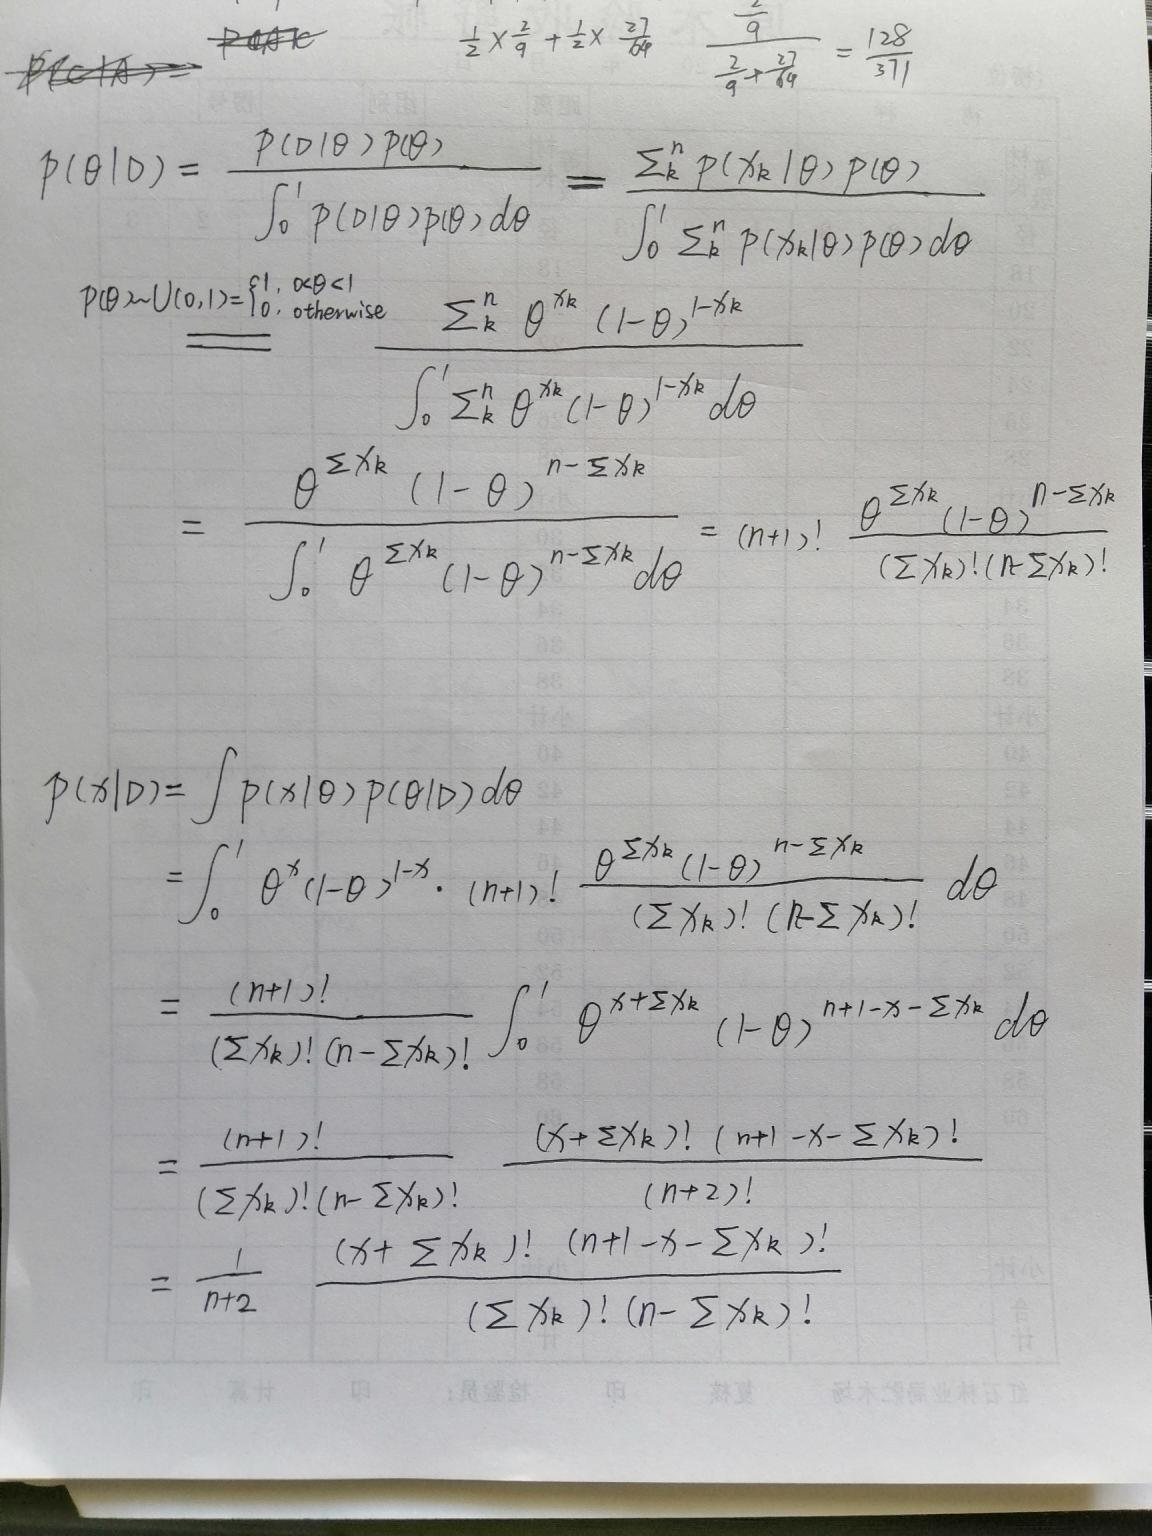 1/2 × 2/9 + 1/2 × 27/64    (2/9)/(2/9 + 27/64) = 128/371
p(θ|D) = p(D|θ)p(θ) / ∫₀¹ p(D|θ)p(θ)dθ = Σₖⁿ p(xₖ|θ)p(θ) / ∫₀¹ Σₖⁿ p(xₖ|θ)p(θ)dθ
p(θ)~U(0,1)={1, 0<θ<1
0, otherwise
= Σₖⁿ θ^{xₖ} (1-θ)^{1-xₖ} / ∫₀¹ Σₖⁿ θ^{xₖ}(1-θ)^{1-xₖ}dθ
= θ^{Σxₖ} (1-θ)^{n-Σxₖ} / ∫₀¹ θ^{Σxₖ}(1-θ)^{n-Σxₖ}dθ = (n+1)! θ^{Σxₖ}(1-θ)^{n-Σxₖ} / (Σxₖ)!(n-Σxₖ)!
p(x|D) = ∫ p(x|θ)p(θ|D)dθ
= ∫₀¹ θ^x(1-θ)^{1-x} · (n+1)! θ^{Σxₖ}(1-θ)^{n-Σxₖ} / (Σxₖ)!(n-Σxₖ)! dθ
= (n+1)! / (Σxₖ)!(n-Σxₖ)! ∫₀¹ θ^{x+Σxₖ} (1-θ)^{n+1-x-Σxₖ} dθ
= (n+1)! / (Σxₖ)!(n-Σxₖ)! (x+Σxₖ)!(n+1-x-Σxₖ)! / (n+2)!
= 1/(n+2) (x+Σxₖ)!(n+1-x-Σxₖ)! / (Σxₖ)!(n-Σxₖ)!